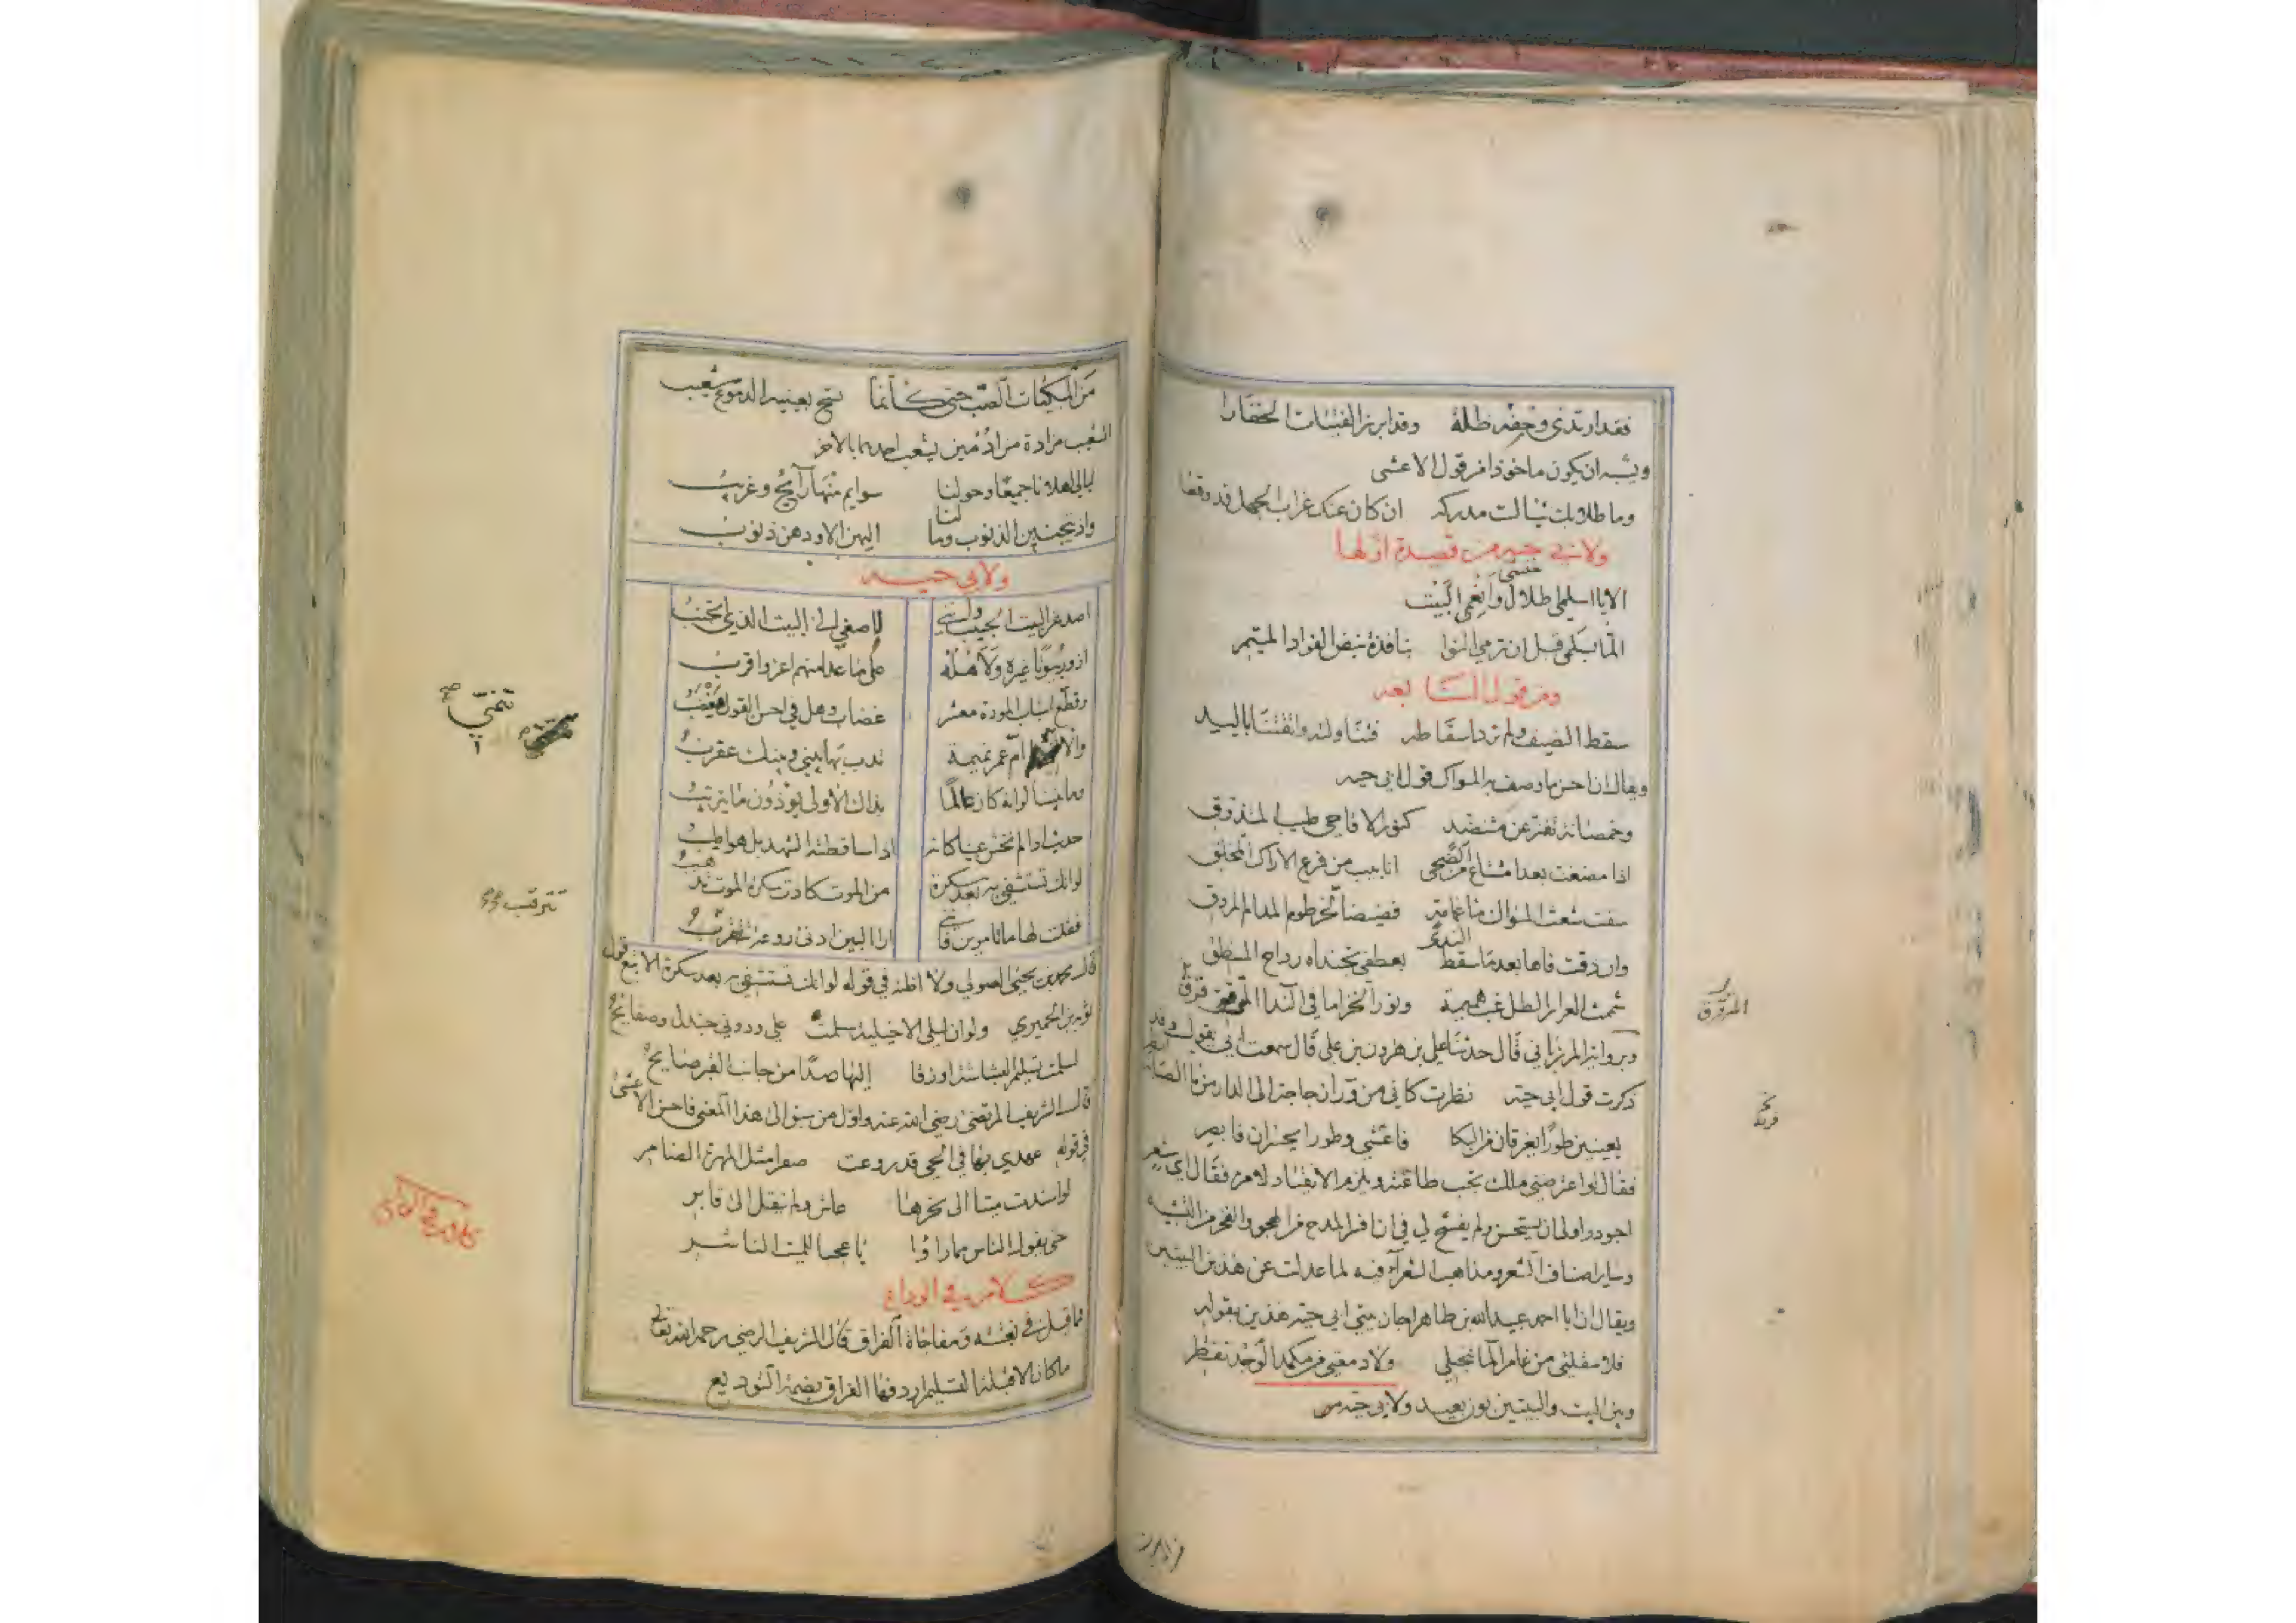 فقد ارتدي وحفه طله وقد ابرز الفتيات الخفارا
ويشبه ان يكون ماخوذا من قول الاعشى
وما طلابك شيا لست مدركه ان كان عنك غراب الجهل قد وقعا
ولابي حيه من قصيدة اولها
الا يا اسلمي اطلال خنسى وانعمي
الما بسلمى قبل ان ترمي النوا بنافذة نبض الفواد المتيم
ومن قول النابغه
سقط النصيف ولم ترد اسقاطه فتناولته واتقتنا باليد
ويقال ان احسن ما وصف به المسواك قول ابي حيه
وخمصانة تفتر عن متنضد كنور الاقاحي طيب المتذوق
اذا مضغت بعد امتناع من الضحى انابيب من فرع الاراك المخلق
سقت شعث المسواك ماء غمامة فضيضا بخرطوم المدام المروق
وان ذقت فاها بعد ما سقط الندى بعطفي بخنداة رداح المنطق
شممت العرار الطل غب هميمة ونور الخزاما في الندا المترقرق
وبرواية المرزباني قال حدثنا علي بن هرون بن علي قال سمعت ابي يقول وقد
ذكرت قول ابي حيه نظرت كاني من ورآء زجاجة الى الدار من ما الصبابة
بعينين طورا يغرقان من البكا فاعشي وطورا يحسران فابصر
فقال لو اعترضني ملك تجب طاعته ويلزم الانقياد لامره فقال اي شعر
اجود واولى ان يستحسن ولم يفسح لي في ان افرد المدح من الهجو والفخر من التشبيه
وساير اصناف الشعر ومذاهب الشعرآء فيه لما عدلت عن هذين البيتين
ويقال ان ابا احمد عبيد الله بن طاهر اجاز بيتي ابي حيه هذين بقوله
فلا مقلتي من غامر الما تنجلي ولا دمعتي من مكمد الوجد تقطر
وبين البيت والبيتين بون بعيد ولابي حيه
المترقرق
من المبكيات الصب حتى كانما تسح بعينيه الدموع شعيب
الشعيب مزادة من اديمين يشعب احدهما بالاخر
ليالي اهلونا جميعا وحولنا سوايم منها رآيح وغريب
واذ يتجنبن الذنوب وما لنا اليهن الا ودهن ذنوب
ولابي حيه
اصد عن البيت الحبيب وانني لاصغي الى البيت الذي اتجنب
ازور بيوتا غيره ولاهله على ما عدا منهم اعز واقرب
وقطع اسباب المودة معشر غضاب وهل في احسن القول مغضب
ام عمرو نميمة تدب بها بيني وبينك عقرب
وما بيننا لو انه كان عالما بذاك الاولى يوذون ما يترتب
حديث اذا لم تخش عينا كانه اذا ساقطته الشهد بل هو اطيب
لو انك تستشفي به بعد سكرة من الموت كادت سكرة الموت تذهب
فقلت لها ما تامرين فانني ارا البين ادنى روعة تترقب
قال محمد بن يحيى الصولي ولا اظنه في قوله لو انك تستشفي به بعد سكرة الا تبع قول
توبه بن الحميري ولو ان ليلى الاخيليه سلمت علي ودوني جندل وصفايح
لسلمت تسليم البشاشة او زقا اليها صدا من جانب القبر صايح
قال الشريف المرتضى رضي الله عنه واول من سبق الى هذا المعنى فاحسن الاعشى
في قوله عهدي بها في الحي قد درعت صفرا مثل المهرة الضامر
لو اسندت ميتا الى نحرها عاش ولم ينقل الى قابر
حتى يقول الناس مما راوا يا عجبا للميت الناشر
كلام في الوداع
مما قيل في بغتته ومفاجاة الفراق قال الشريف الرضي رحمه الله تعالى
ما كان الا قبلة التسليم اردفها الفراق بضمة التوديع
تنمي صح
تترقب